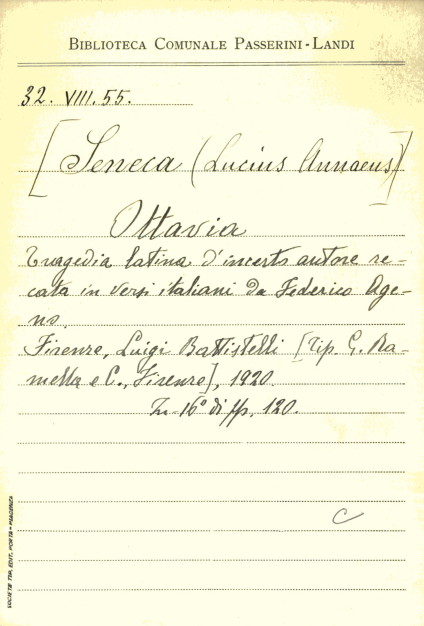 BIBLIOTECA COMUNALE PASSERINI-LANDI
32. VIII. 55.
[Seneca (Lucius Annaeus)]
Ottavia
Tragedia latina d'incerto autore re-
cata in versi italiani da Federico Age-
no.
Firenze, Luigi Battistelli [Tip. G. Ra-
mella e C., Firenze], 1920.
In-16° di pp. 120.
C
SOCIETÀ TIP. EDIT. PORTA - PIACENZA